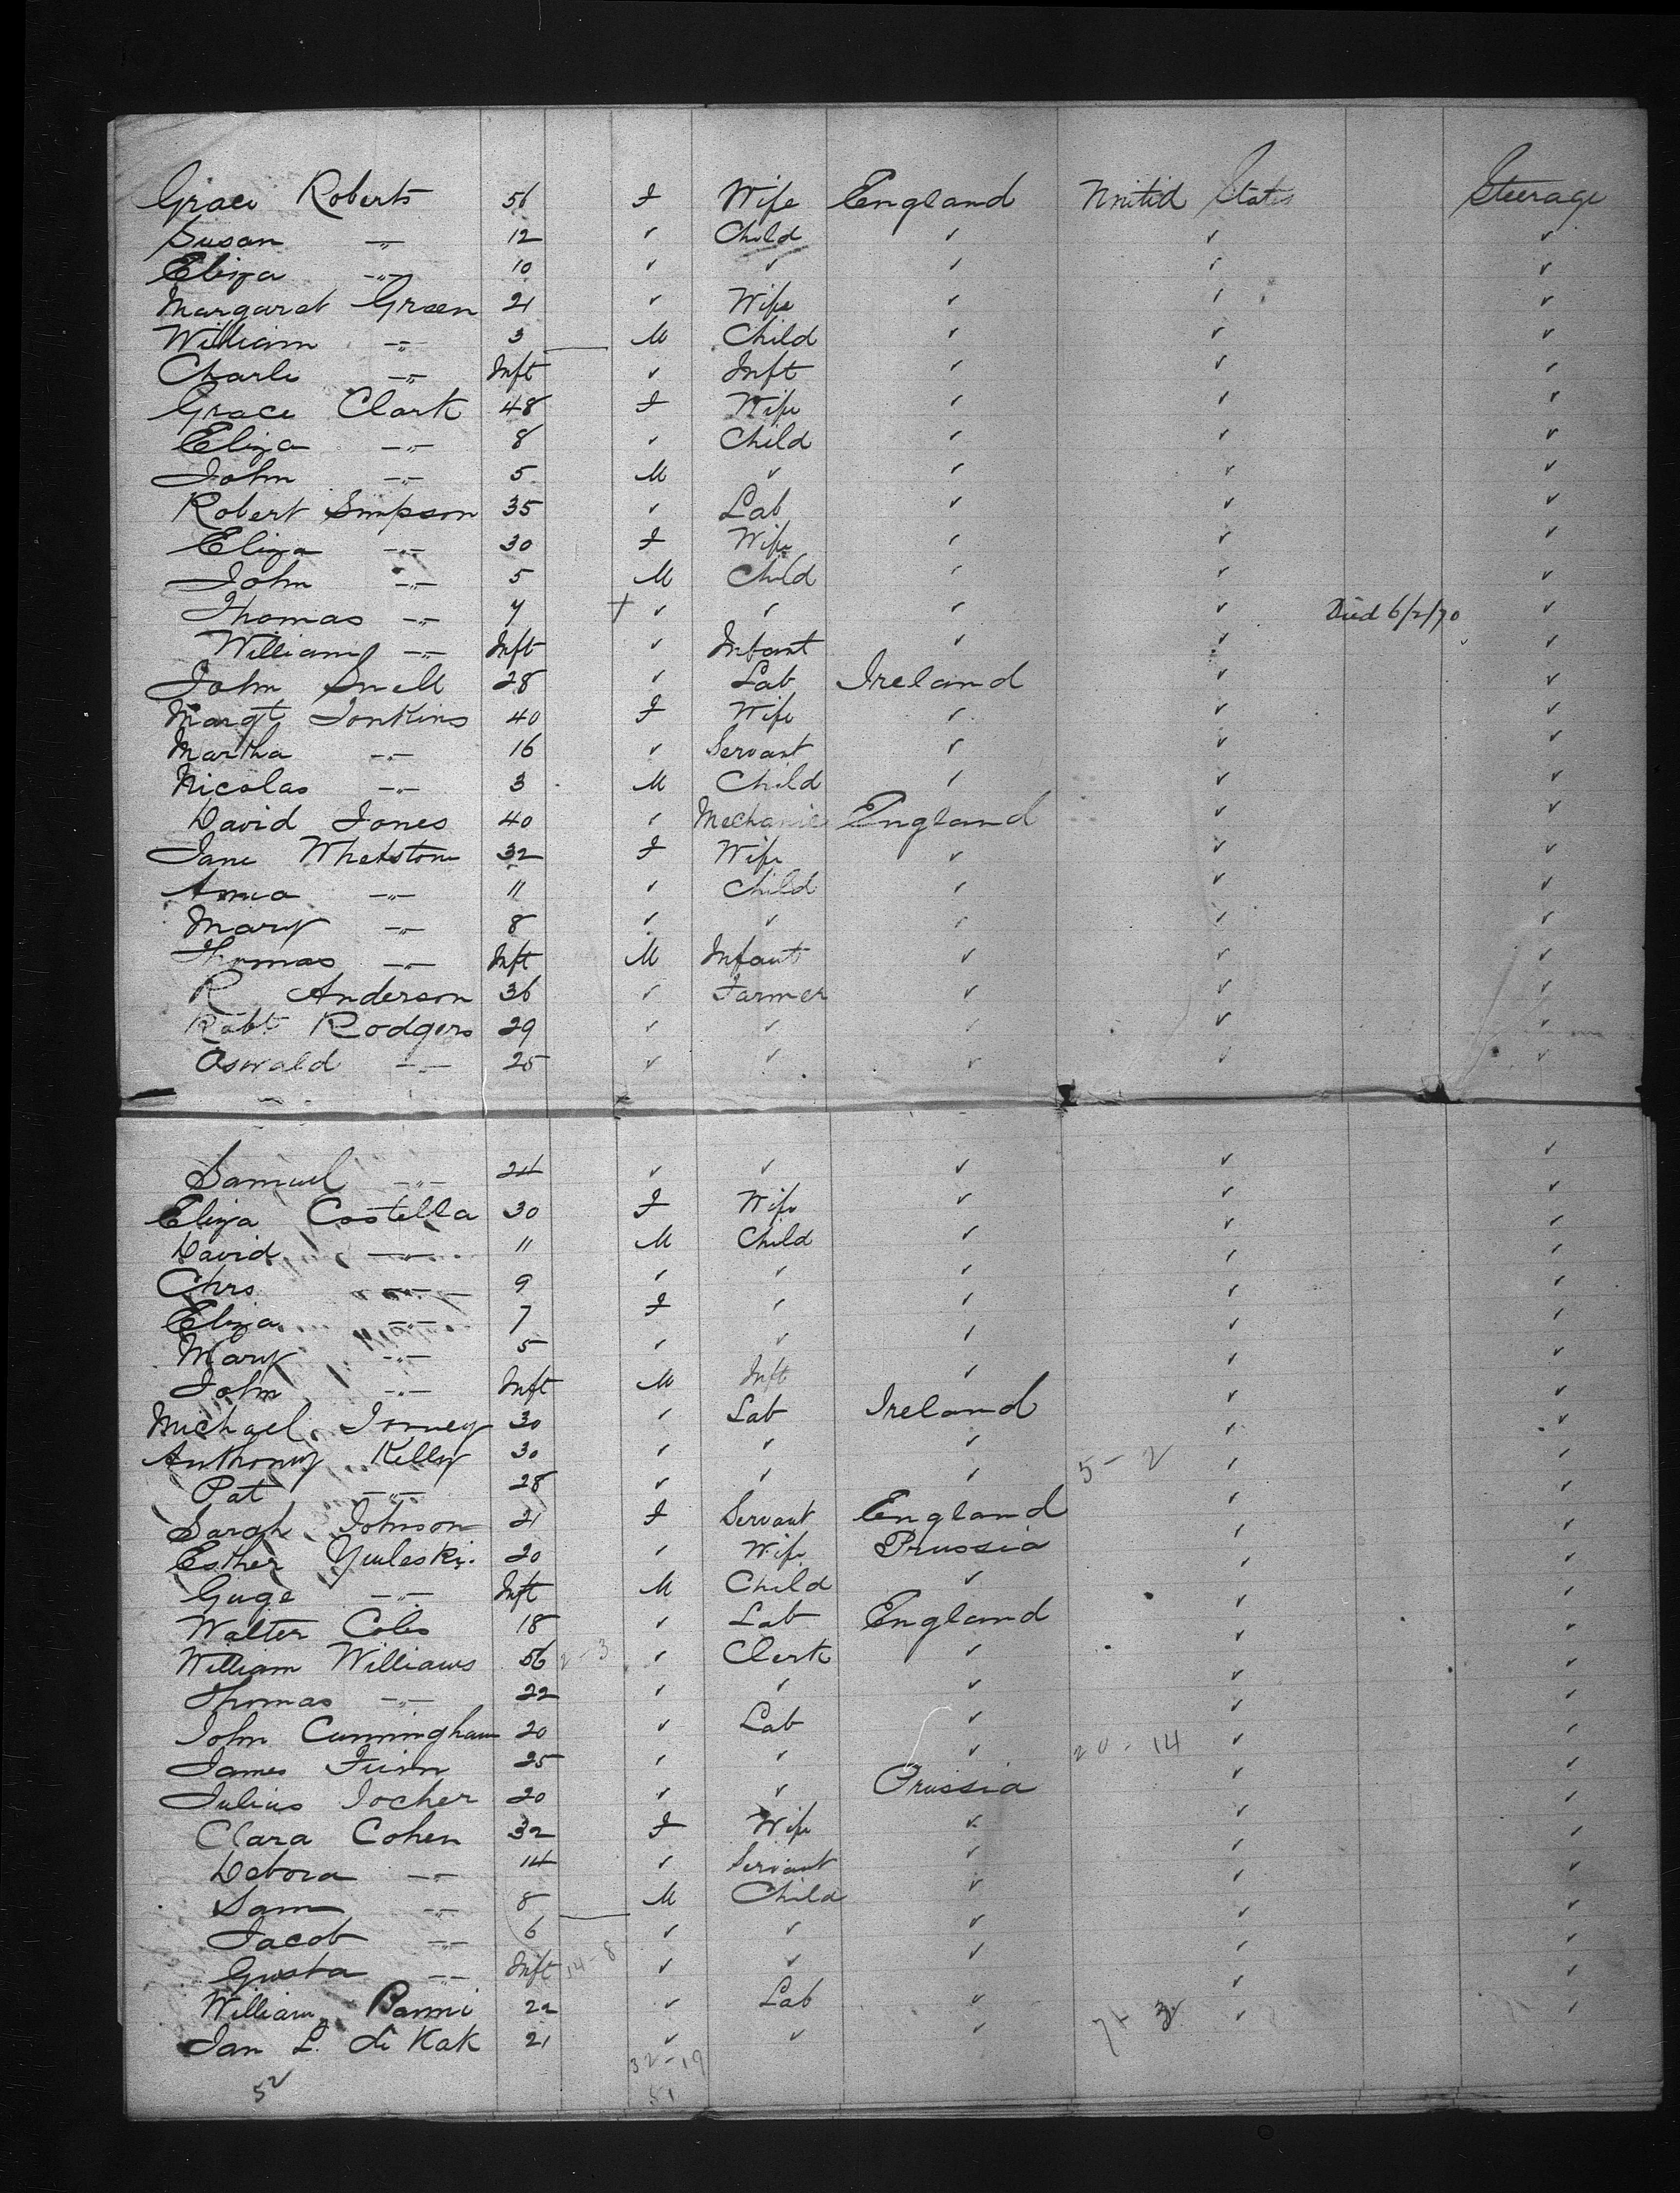 Grace Roberts 56 F Wife England United States Steerage
Susan —"— 12 ✓ Child ✓ ✓ ✓
Eliza —"— 10 ✓ ✓ ✓ ✓ ✓
Margaret Green 21 ✓ Wife ✓ ✓ ✓
William —"— 3 M Child ✓ ✓ ✓
Charles —"— Inft ✓ Inft ✓ ✓ ✓
Grace Clark 48 F Wife ✓ ✓ ✓
Eliza —"— 8 ✓ Child ✓ ✓ ✓
John —"— 5 M ✓ ✓ ✓ ✓
Robert Simpson 35 ✓ Lab ✓ ✓ ✓
Eliza —"— 30 F Wife ✓ ✓ ✓
John —"— 5 M Child ✓ ✓ ✓
Thomas —"— 4 + ✓ ✓ ✓ ✓ Died 6/2/70 ✓
William —"— Inft ✓ Infant ✓ ✓ ✓
John Snell 28 ✓ Lab Ireland ✓ ✓
Margt Jonkins 40 F Wife ✓ ✓ ✓
Martha —"— 16 ✓ Servant ✓ ✓ ✓
Nicolas —"— 3 M Child ✓ ✓ ✓
David Jones 40 ✓ Mechanic England ✓ ✓
Jane Whetstone 32 F Wife ✓ ✓ ✓
Anna —"— 11 ✓ Child ✓ ✓ ✓
Mary —"— 8 ✓ ✓ ✓ ✓ ✓
Thomas —"— Inft M Infant ✓ ✓ ✓
R Anderson 36 ✓ Farmer ✓ ✓ ✓
Robt Rodgers 29 ✓ ✓ ✓ ✓ ✓
Oswald —"— 25 ✓ ✓ ✓ ✓ ✓
Samuel —"— 24 ✓ ✓ ✓ ✓ ✓
Eliza Costella 30 F Wife ✓ ✓ ✓
David —"— 11 M Child ✓ ✓ ✓
Chrs —"— 9 ✓ ✓ ✓ ✓ ✓
Eliza —"— 7 F ✓ ✓ ✓ ✓
Mary —"— 5 ✓ ✓ ✓ ✓ ✓
John —"— Inft M Inft ✓ ✓ ✓
Michael 30 ✓ Lab Ireland ✓ ✓
Anthony Kelly 30 ✓ ✓ ✓ ✓ ✓
Pat —"— 28 ✓ ✓ ✓ 5 - 2 ✓ ✓
Sarah Johnson 21 F Servant England ✓ ✓
Esther 20 ✓ Wife Prussia ✓ ✓
Guge —"— Inft M Child ✓ ✓ ✓
Walter Coles 18 ✓ Lab England ✓ ✓
William Williams 56 2 - 3 ✓ Clerk ✓ ✓ ✓
Thomas —"— 22 ✓ ✓ ✓ ✓ ✓
John Cunningham 20 ✓ Lab ✓ ✓ ✓
James Finn 25 ✓ ✓ ✓ 20 - 14 ✓ ✓
Julius Jocher 20 ✓ ✓ Prussia ✓ ✓
Clara Cohen 32 F Wife ✓ ✓ ✓
Debora —"— 14 ✓ Servant ✓ ✓ ✓
Sam —"— 8 M Child ✓ ✓ ✓
Jacob —"— 6 ✓ ✓ ✓ ✓ ✓
Gusta —"— Inft 14-8 ✓ ✓ ✓ ✓ ✓
William 22 ✓ Lab ✓ ✓ ✓
Jan L. de Kak 21 ✓ ✓ ✓ ✓ ✓
52 32-19
51